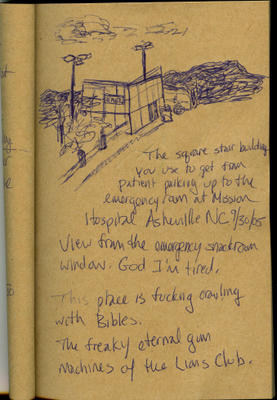 The square stair building
you use to get from
patient parking up to the
emergency room at Mission
Hospital Asheville NC 9/30/05
View from the emergency snackroom
window. God I'm tired.
This place is fucking crawling
with Bibles.
The freaky eternal gum
machines of the Lions Club.